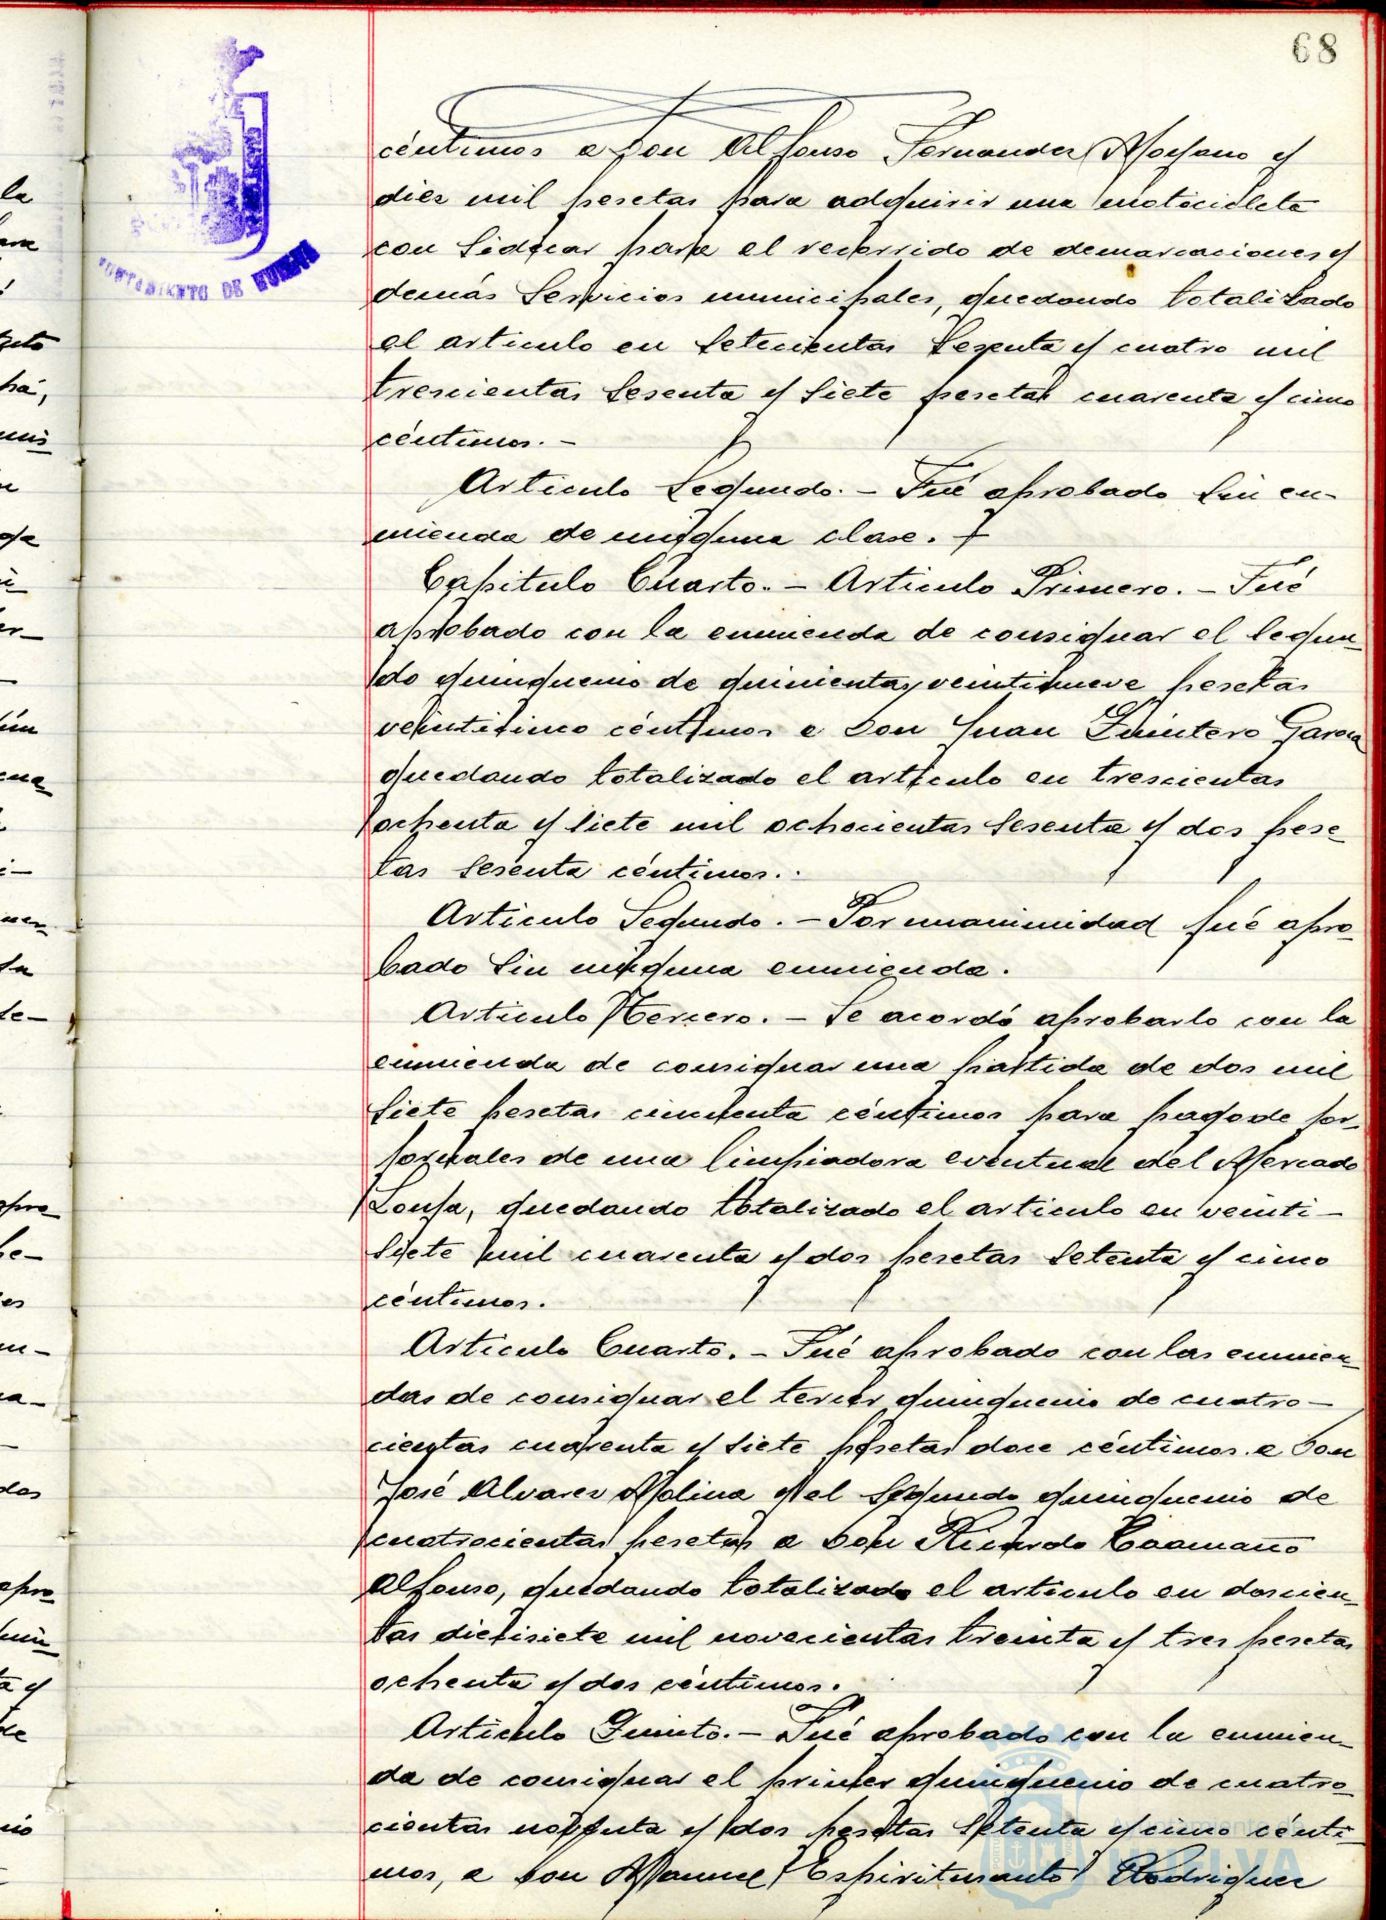 68
céntimos a Don Alfonso Fernandez Moyano y
diez mil pesetas para adquirir una motocicleta
con Sidecar para el recorrido de demarcaciones y
demás Servicios municipales, quedando totalizado
el articulo en Setecientas Sesenta y cuatro mil
trescientas Sesenta y Siete pesetas cuarenta y cinco
céntimos. -
Articulo Segundo. - Fué aprobado Sin en-
mienda de ninguna clase. -
Capitulo Cuarto. - Articulo Primero. - Fué
aprobado con la enmienda de consignar el Segun-
do quinquenio de quinientas veintinueve pesetas
veinticinco céntimos a Don Juan Quintero Garcia
quedando totalizado el articulo en trescientas
ochenta y siete mil ochocientas Sesenta y dos pese-
tas sesenta céntimos.
Articulo Segundo. - Por unanimidad fué apro-
bado Sin ninguna enmienda.
Articulo Tercero. - Se acordó aprobarlo con la
enmienda de consignar una partida de dos mil
Siete pesetas cincuenta céntimos para pago de jor-
jornales de una limpiadora eventual del Mercado
Lonja, quedando totalizado el articulo en veinti-
siete mil cuarenta y dos pesetas Setenta y cinco
céntimos.
Articulo Cuarto. - Fué aprobado con las enmien-
das de consignar el tercer quinquenio de cuatro-
cientas cuarenta y siete pesetas doce céntimos a Don
José Alvarez Molina y el Segundo quinquenio de
cuatrocientas pesetas a Don Ricardo Caamaño
Alfonso, quedando totalizado el articulo en doscien-
tas diecisiete mil novecientas treinta y tres pesetas
ochenta y dos céntimos.
Articulo Quinto. - Fué aprobado con la enmien-
da de consignar el primer quinquenio de cuatro-
cientas noventa y dos pesetas Setenta y cinco cénti-
mos, a Don Manuel Espiritusanto Rodriguez
AYUNTAMIENTO DE HUELVA